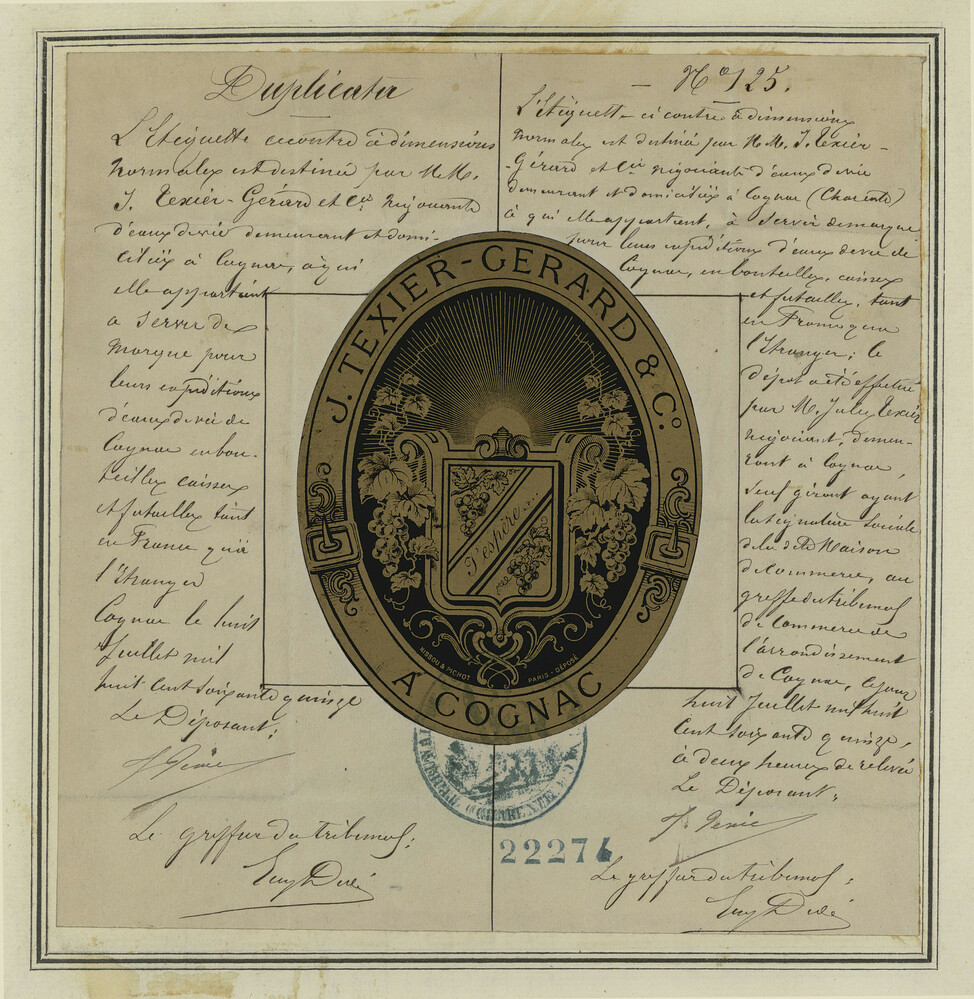 Duplicata
L'Etiquette cicontre à dimensions
normales est destinée par M.M.
J. Texier-Gérard et Cie négociants
d'eaux de vie demeurant et domi-
ciliés à Cognac, à qui
elle appartient
à servir de
marque pour
leurs expéditions
d'eaux de vie de
Cognac en bou-
teilles caisses
et futailles tant
en France qu'à
l'étranger
Cognac le huit
Juillet mil
huit cent soixante quinze
Le Déposant:
Le greffier du tribunal:
No 125.
L'étiquette ci contre à dimensions
normales est destinée par M.M. J. Texier-
Gérard et Cie négociants d'eaux de vie
demeurant et domiciliés à Cognac (Charente)
à qui elle appartient, à servir de marque
pour leurs expéditions d'eaux de vie de
Cognac, en bouteilles, caisses
et futailles, tant
en France qu'à
l'étranger; le
dépôt a été effectué
par M. Jules Texier
négociant, demeu-
rant à Cognac
seul gérant ayant
la signature sociale
de la dite Maison
de Commerce, au
greffe du tribunal
de Commerce de
l'arrondissement
de Cognac, ce jour
huit Juillet mil huit
cent soixante quinze,
à deux heures de relevée
Le Déposant:
Le greffier du tribunal:
J. TEXIER-GERARD & Co.
J'espère...
NISSOU & PICHOT PARIS - DÉPOSÉ
A COGNAC
CHARENTE
22274